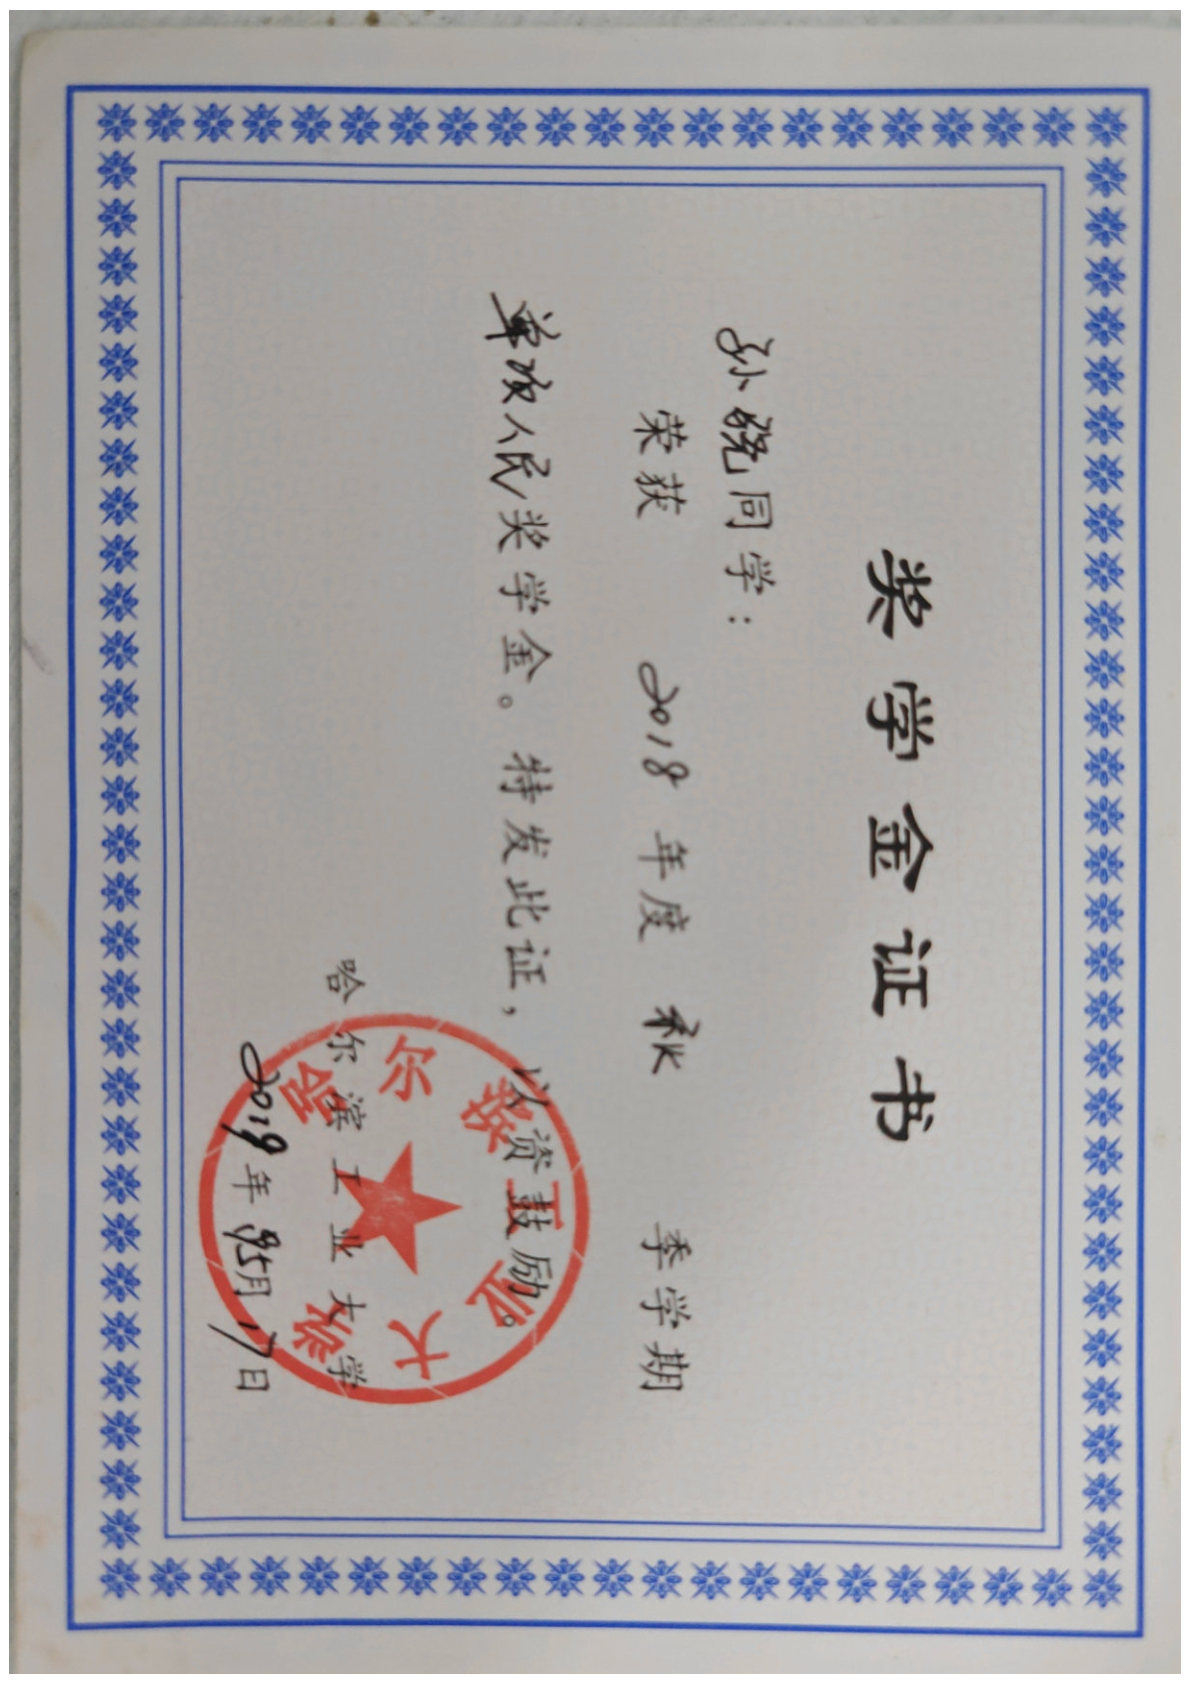 奖学金证书
孙晓同学:
荣获 2018 年度 秋 季学期
单项人民奖学金。特发此证,以资鼓励。
哈尔滨工业大学
2019年 月17日
哈尔滨工业大学